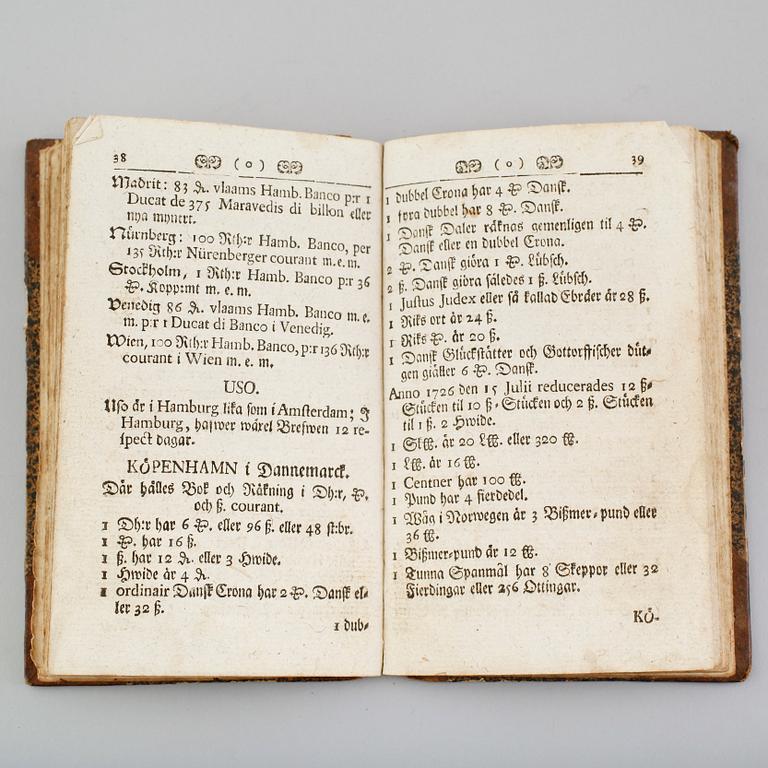 38 ( o )
Madrit: 83 ₰. vlaams Hamb. Banco p:r 1
Ducat de 375 Maravedis di billon eller
nya myntet.
Nürnberg: 100 Rth:r Hamb. Banco, per
135 Rth:r Nürenberger courant m. e. m.
Stockholm, 1 Rth:r Hamb. Banco p:r 36
℔. Kopp:mt m. e. m.
Venedig 86 ₰. vlaams Hamb. Banco m. e.
m. p:r 1 Ducat di Banco i Venedig.
Wien, 100 Rth:r Hamb. Banco, p:r 136 Rth:r
courant i Wien m. e. m.
USO.
Uso är i Hamburg lika som i Amsterdam;
Hamburg, hafwer wårel Brefwen 12 re-
spect dagar.
KÖPENHAMN i Dannemarck.
Där hålles Bok och Räkning i Dh:r, ℔.
och ß. courant.
1 Dh:r har 6 ℔. eller 96 ß. eller 48 st:br.
1 ℔. har 16 ß.
1 ß. har 12 ₰. eller 3 Hwide.
1 Hwide är 4 ₰.
1 ordinair Dansk Crona har 2 ℔. Dansk el-
ler 32 ß.
1 dub-
( o ) 39
1 dubbel Crona har 4 ℔. Dansk.
1 fyra dubbel har 8 ℔. Dansk.
1 Dansk Daler räknas gemenligen til 4 ℔.
Dansk eller en dubbel Crona.
2 ℔. Dansk giöra 1 ℔. Lübsch.
2 ß. Dansk giöra således 1 ß. Lübsch.
1 Justus Judex eller så kallad Ebräer är 28 ß.
1 Riks ort är 24 ß.
1 Riks ℔. är 20 ß.
1 Dansk Glückstätter och Gottorffischer düt-
gen giäller 6 ℔. Dansk.
Anno 1726 den 15 Julii reducerades 12 ß-
Stücken til 10 ß-Stücken och 2 ß. Stücken
til 1 ß. 2 Hwide.
1 St℔. är 20 L℔. eller 320 ℔.
1 L℔. är 16 ℔.
1 Centner har 100 ℔.
1 Pund har 4 fierdedel.
1 Wåg i Norwegen är 3 Bißmer-pund eller
36 ℔.
1 Bißmer-pund är 12 ℔.
1 Tunna Spanmål har 8 Skeppor eller 32
Fierdingar eller 256 Ottingar.
KÖ-